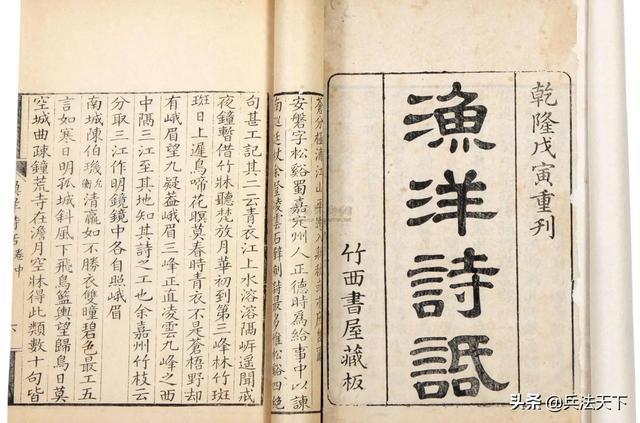 乾隆戊寅重刊
漁洋詩䛡
竹西書屋藏板
安磐字松谿蜀嘉定州人正德時為給事中以諫
南巡廷杖余登凌雲石鋒刻詩最多惟松谿四絶
句甚工記其二云青衣江上水溶溶隔岍遥聞戒
夜鐘暫借竹牀聽梵放月華初到第三峰林竹斑
斑日上遲鳥啼花暝莫春時青衣不是蒼梧野却
有峨眉望九疑蓋峨眉三峰正直凌雲九峰之西
中隔三江至其地知其詩之工也余嘉州竹枝云
分取三江作明鏡鏡中各自照峨眉
南城陳伯璣允衡清羸如不勝衣雙瞳碧色最工五
言如寒日明孤城斜風下飛鳥籃輿望歸鳥日莫
空城曲疎鐘荒寺在澹月空牀得此類數十句皆
詩話卷中
六
头条 @兵法天下